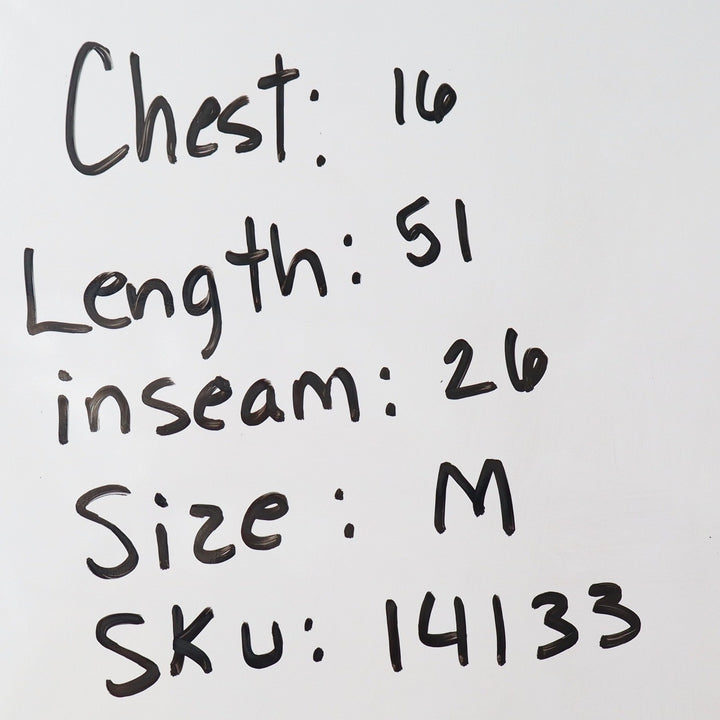 Chest: 16
Length: 51
inseam: 26
Size: M
SKU: 14133